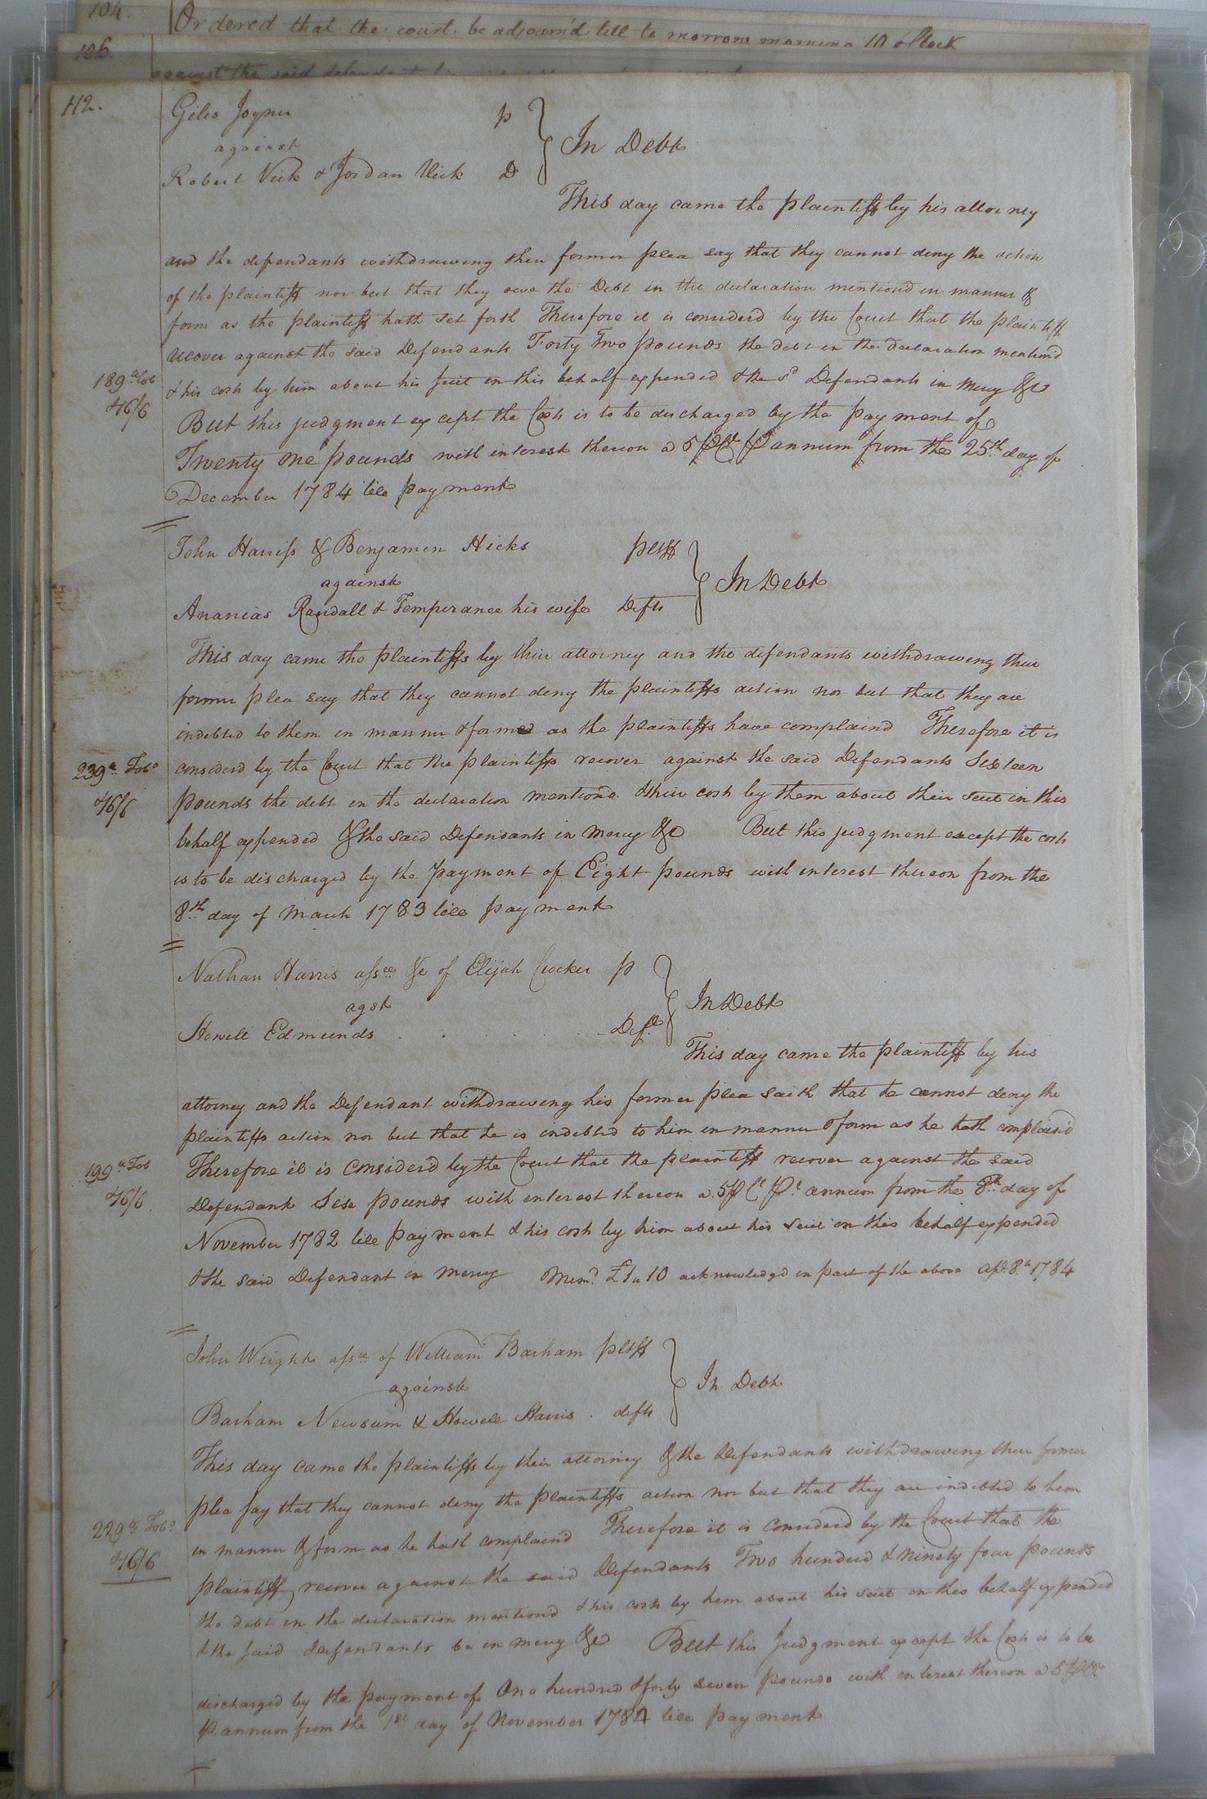 104.
Ordered that the court be adjournd till to morrow morning 10 oClock
106.
against the said defendant
112.
Giles Joyner p
against
Robert Vick & Jordan Vick D
In Debt
This day came the plaintiff by his attorney
and the defendants withdrawing their former plea say that they cannot deny the action
of the plaintiff nor but that they owe the Debt in the declaration mentiond in manner &
form as the plaintiff hath set forth Therefore it is considerd by the Court that the plaintiff
recover against the said Defendants Forty Two pounds the debt in the declaration mentiond
189 a Tob
46/6
& his costs by him about his suit in this behalf expended & the sd Defendants in mercy &c
But this judgment except the Costs is to be discharged by the payment of
Twenty one pounds with interest thereon a 5 P Ct P annum from the 25th day of
December 1784 till payment
John Harriss & Benjamin Hicks pltff
against
Ananias Randall & Temperance his wife Defts
In Debt
This day came the plaintiffs by their attorney and the defendants withdrawing their
former plea say that they cannot deny the plaintiffs action nor but that they are
indebted to them in manner & formed as the plaintiffs have complaind Therefore it is
239 a Tobo
46/6
considerd by the Court that the plaintiffs recover against the said Defendants Sixteen
pounds the debt in the declaration mentiond & their costs by them about their suit in this
behalf expended & the said Defendants in mercy &c But this judgment except the costs
is to be discharged by the payment of Eight pounds with interest thereon from the
8th day of March 1783 till payment
Nathan Harris assee &c of Elijah Crocker p
agst
Howell Edmunds Deft
In Debt
This day came the plaintiff by his
attorney and the Defendant withdrawing his former plea saith that he cannot deny the
plaintiffs action nor but that he is indebted to him in manner & form as he hath complaind
199 a Tob
46/6
Therefore it is considerd by the Court that the plaintiff recover against the said
Defendant Six pounds with interest thereon a 5 P Ct Pr annum from the 8th day of
November 1782 till payment & his costs by him about his suit in this behalf expended
& the said Defendant in mercy Memo £1 " 10 acknowledged in part of the above apl 8th 1784
John Wright assee of William Barham pltff
against
Barham Newsum & Howell Harris defts
In Debt
This day came the plaintiffs by their attorney & the Defendants withdrawing their former
plea say that they cannot deny the plaintiffs action nor but that they are indebted to him
229 a Tobo
46/6
in manner & form as he hath complaind Therefore it is considerd by the Court that the
plaintiff recover against the said Defendants Two hundred & ninety four pounds
the debt in the declaration mentiond & his costs by him about his suit in this behalf expended
& the said Defendants be in mercy &c But this Judgment except the Costs is to be
discharged by the payment of One hundred & forty seven pounds with interest thereon a 5 P Ct
P annum from the 1st day of November 1784 till payment